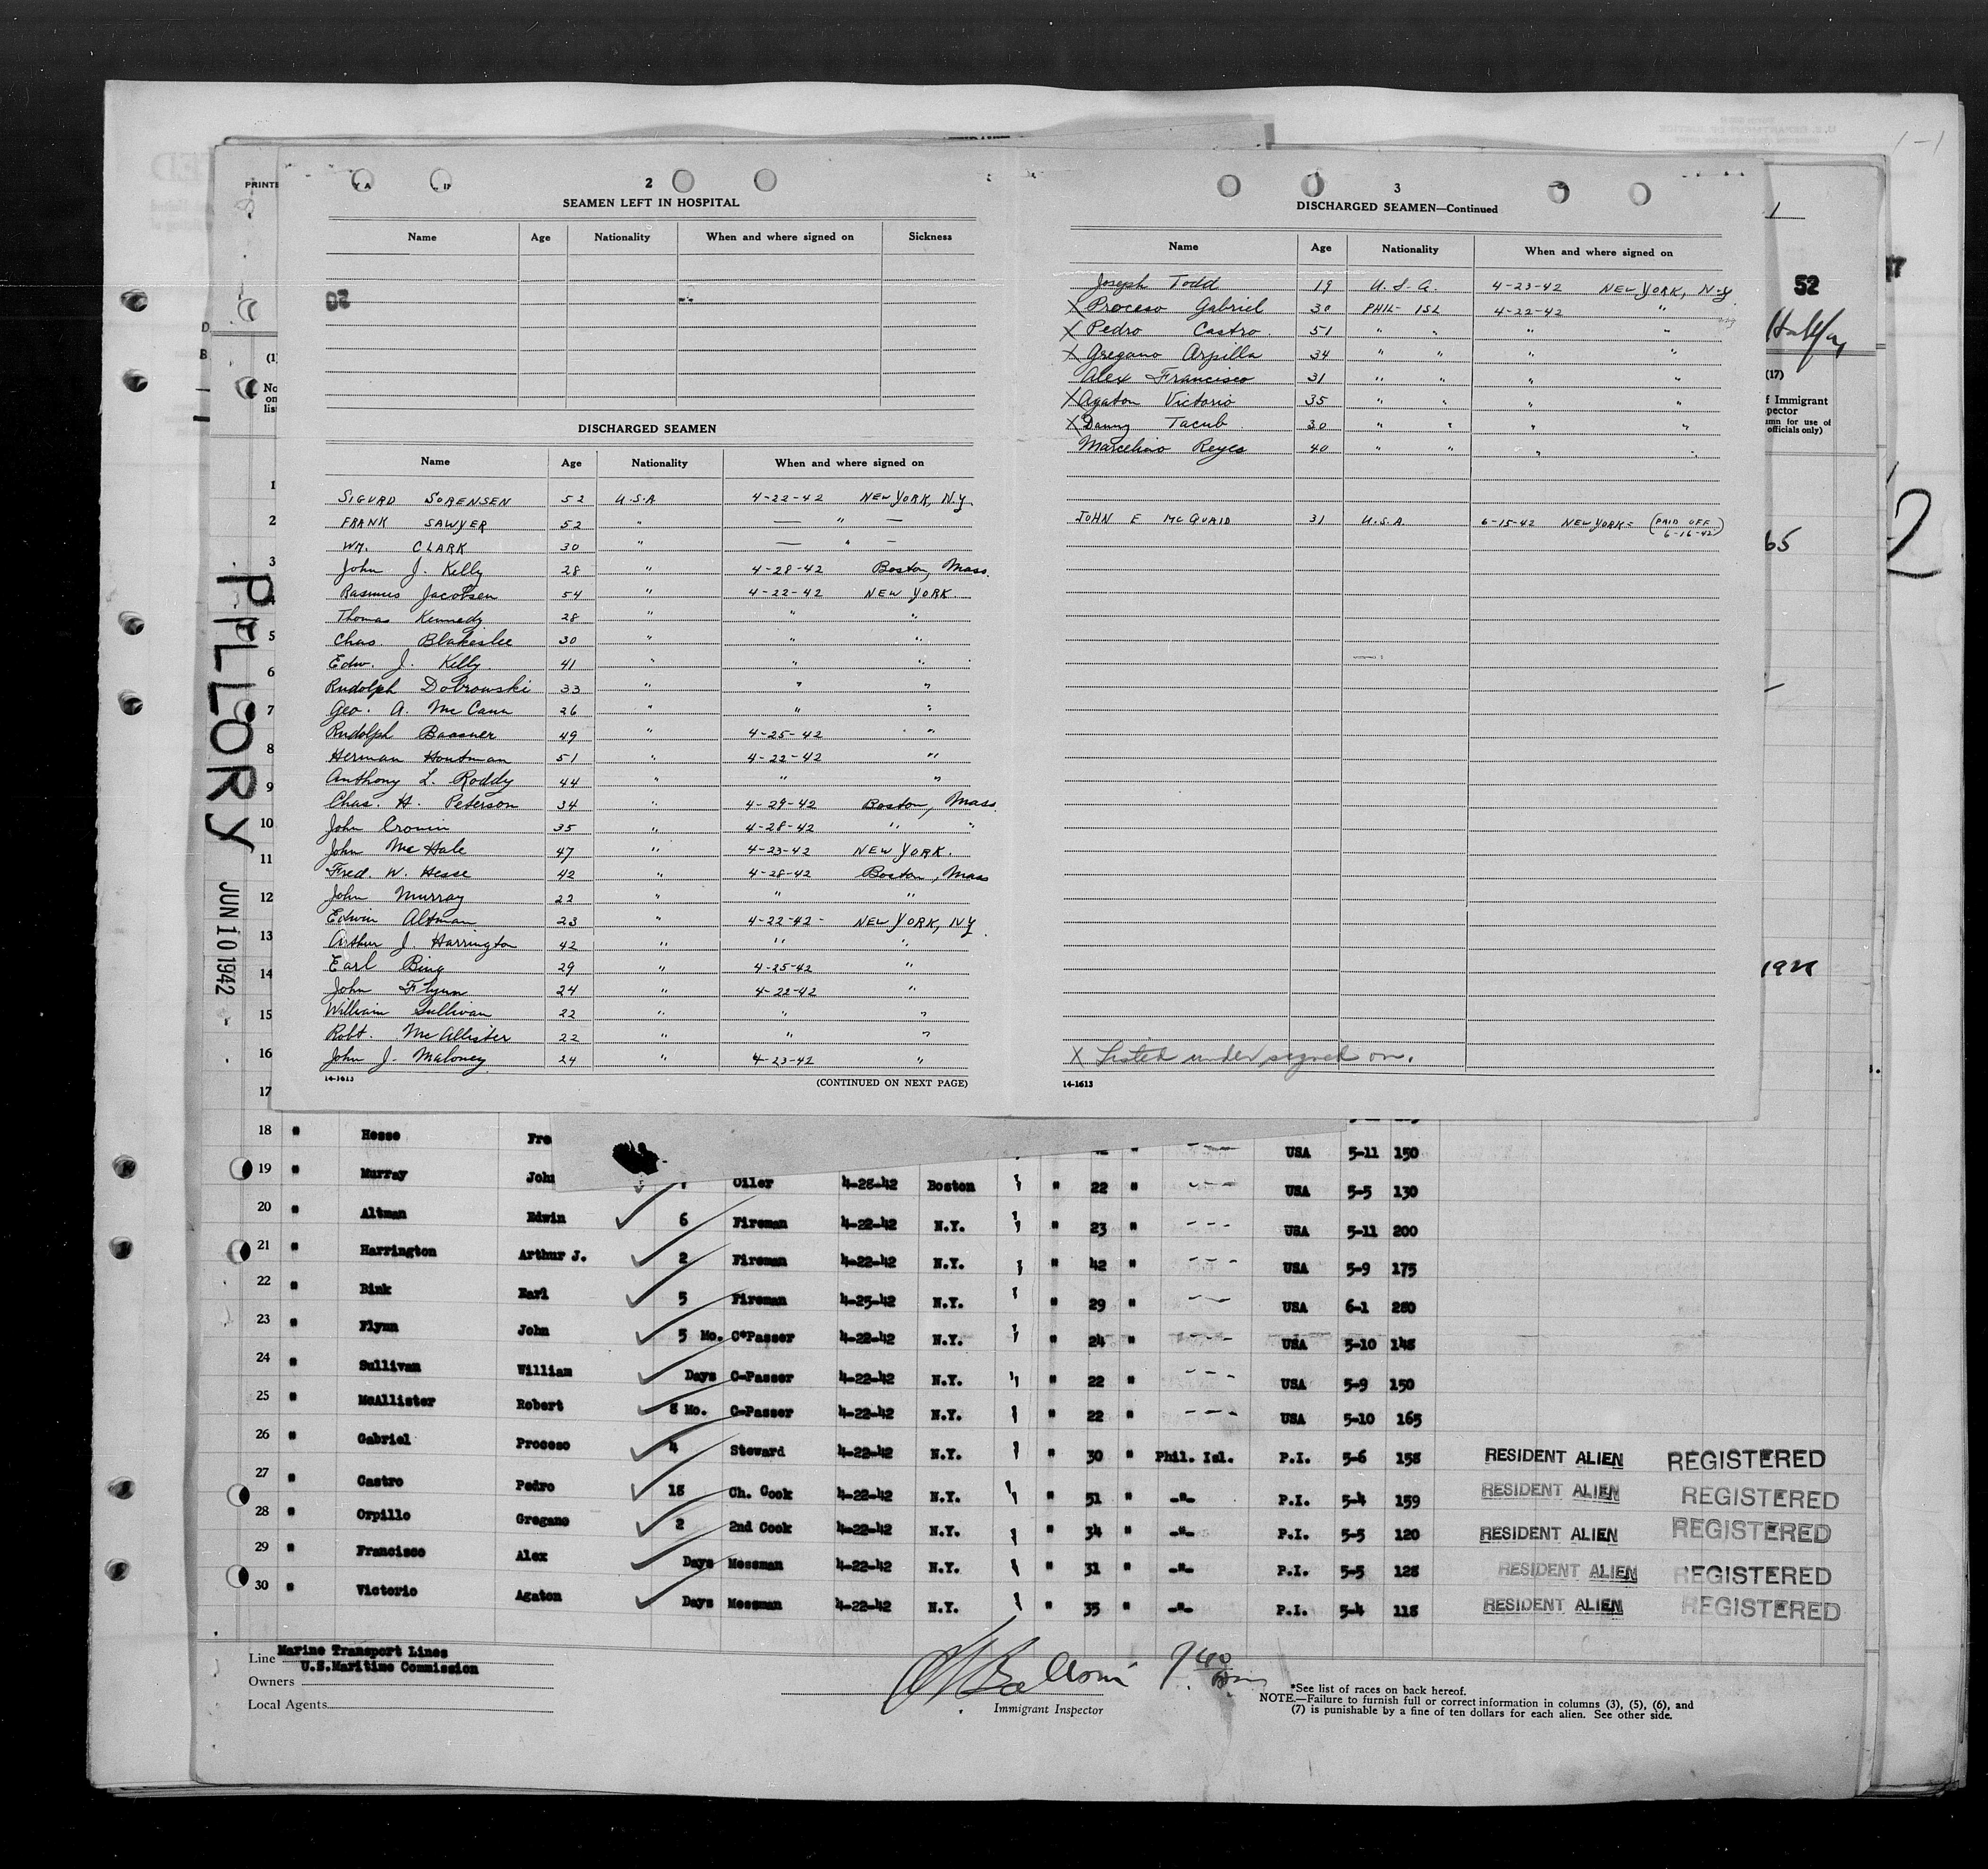 PRINTE
2
SEAMEN LEFT IN HOSPITAL
Name Age Nationality When and where signed on Sickness
20
DISCHARGED SEAMEN
Name Age Nationality When and where signed on
SIGURD SORENSEN 52 U.S.A 4-22-42 NEW YORK, N.Y.
FRANK SAWYER 52 " — " —
WM. CLARK 30 " — " —
John J. Kelly 28 " 4-28-42 Boston, Mass.
Rasmus Jacobsen 54 " 4-22-42 NEW YORK.
Thomas Kennedy 28 " " "
Chas. Blakeslee 30 " " "
Edw. J. Kelly. 41 " " "
Rudolph Dobrowski 33 " " "
Geo. A. McCann 26 " " "
Rudolph Bassner 49 " 4-25-42 "
Herman Houtman 51 " 4-22-42 "
Anthony L. Roddy 44 " " "
Chas. H. Peterson 34 " 4-29-42 Boston, Mass.
John Cronin 35 " 4-28-42 " "
John McHale 47 " 4-23-42 NEW YORK.
Fred. W. Hesse 42 " 4-28-42 Boston, Mass
John Murray 22 " " "
Edwin Altman 23 " 4-22-42- NEW YORK, NY.
Arthur J. Harrington 42 " " "
Earl Bing 29 " 4-25-42 "
John Flynn 24 " 4-22-42 "
William Sullivan 22 " " "
Robt. McAllister 22 " " "
John J. Maloney 24 " 4-23-42 "
14-1613 (CONTINUED ON NEXT PAGE)
3
DISCHARGED SEAMEN—Continued
Name Age Nationality When and where signed on
Joseph Todd 19 U.S.A. 4-23-42 NEW YORK, N.Y.
X Proceso Gabriel 30 PHIL- ISL 4-22-42 "
X Pedro Castro. 51 " " " "
X Gregano Arpilla 34 " " " "
Alex Francisco 31 " " " "
X Agaton Victorio 35 " " " "
X Danny Tacub 30 " " " "
Marcelino Reyes 40 " " " "
JOHN E McQUAID 31 U.S.A. 6-15-42 NEW YORK= (PAID OFF 6-16-42)
X Listed under signed on.
14-1613
52
Halifax
(17)
f Immigrant
pector
mn for use of
officials only)
65
2
(1)
No
on
lis
1
2
3
5
6
7
8
9
10
11
12
13
14
15
16
17
PILLORY
JUN 10 1942
18 " Hesse Fre " USA 5-11 150
19 " Murray John Oiler 4-28-42 Boston " 22 " --- USA 5-5 130
20 " Altman Edwin 6 Fireman 4-22-42 N.Y. " 23 " --- USA 5-11 200
21 " Harrington Arthur J. 2 Fireman 4-22-42 N.Y. " 42 " --- USA 5-9 175
22 " Bink Earl 5 Fireman 4-25-42 N.Y. " 29 " --- USA 6-1 280
23 " Flynn John 5 Mo. C"Passer 4-22-42 N.Y. " 24 " --- USA 5-10 148
24 " Sullivan William Days C-Passer 4-22-42 N.Y. " 22 " --- USA 5-9 150
25 " McAllister Robert 8 Mo. C-Passer 4-22-42 N.Y. " 22 " --- USA 5-10 165
26 " Gabriel Proceso 4 Steward 4-22-42 N.Y. " 30 " Phil. Isl. P.I. 5-6 158 RESIDENT ALIEN REGISTERED
27 " Castro Pedro 18 Ch. Cook 4-22-42 N.Y. " 51 " -"- P.I. 5-4 159 RESIDENT ALIEN REGISTERED
28 " Orpillo Gregano 2 2nd Cook 4-22-42 N.Y. " 34 " -"- P.I. 5-5 120 RESIDENT ALIEN REGISTERED
29 " Francisco Alex Days Messman 4-22-42 N.Y. " 31 " -"- P.I. 5-5 128 RESIDENT ALIEN REGISTERED
30 " Victorio Agaton Days Messman 4-22-42 N.Y. " 35 " -"- P.I. 5-4 118 RESIDENT ALIEN REGISTERED
Line Marine Transport Lines
U.S.Maritime Commission
Owners
Local Agents
Immigrant Inspector
*See list of races on back hereof.
NOTE.—Failure to furnish full or correct information in columns (3), (5), (6), and
(7) is punishable by a fine of ten dollars for each alien. See other side.